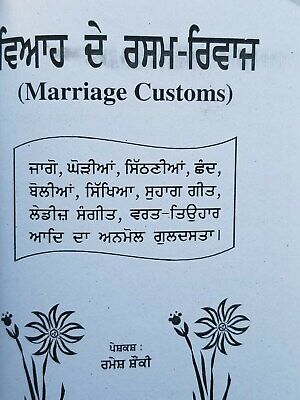 ਵਿਆਹ ਦੇ ਰਸਮ-ਰਿਵਾਜ
(Marriage Customs)
ਜਾਗੋ, ਘੋੜੀਆਂ, ਸਿੱਠਣੀਆਂ, ਛੰਦ,
ਬੋਲੀਆਂ, ਸਿੱਖਿਆ, ਸੁਹਾਗ ਗੀਤ,
ਲੇਡੀਜ਼ ਸੰਗੀਤ, ਵਰਤ-ਤਿਉਹਾਰ
ਆਦਿ ਦਾ ਅਨਮੋਲ ਗੁਲਦਸਤਾ।
ਪੇਸ਼ਕਸ਼ :
ਰਮੇਸ਼ ਸ਼ੌਂਕੀ